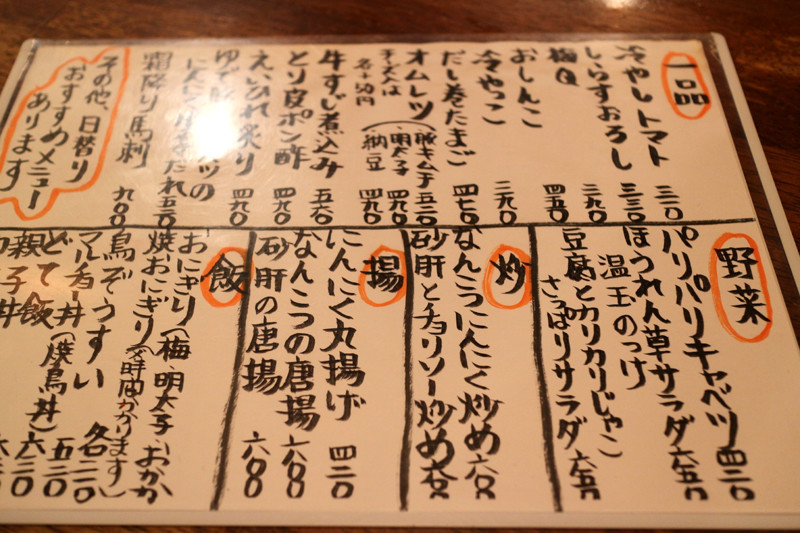 一品
冷やしトマト 三二〇
しらすおろし 三三〇
梅Q 三九〇
おしんこ 四五〇
冷やっこ 三九〇
だし巻たまご 四七〇
オムレツ(豚キムチ 五二〇
明太子 四九〇
納豆 四九〇
各+50円
牛すじ煮込み 五七〇
とり皮ポン酢 四九〇
えいひれ炙り 四九〇
霜降り馬刺 九〇〇
その他、日替り
おすすめメニュー
あります
野菜
パリパリキャベツ 四二〇
ほうれん草サラダ 六五〇
温玉のっけ
豆腐とカリカリじゃこ
さっぱりサラダ 六五〇
炒
なんこつにんにく炒め 六〇〇
砂肝とチョリソー炒め 六〇〇
揚
にんにく丸揚げ 四二〇
なんこつの唐揚 六八〇
砂肝の唐揚 六八〇
飯
おにぎり(梅・明太子・おかか
焼おにぎり(お時間かかります)
鳥ぞうすい 各二二〇
マルチョー丼(焼鳥丼) 五二〇
どて飯 六二〇
親子丼